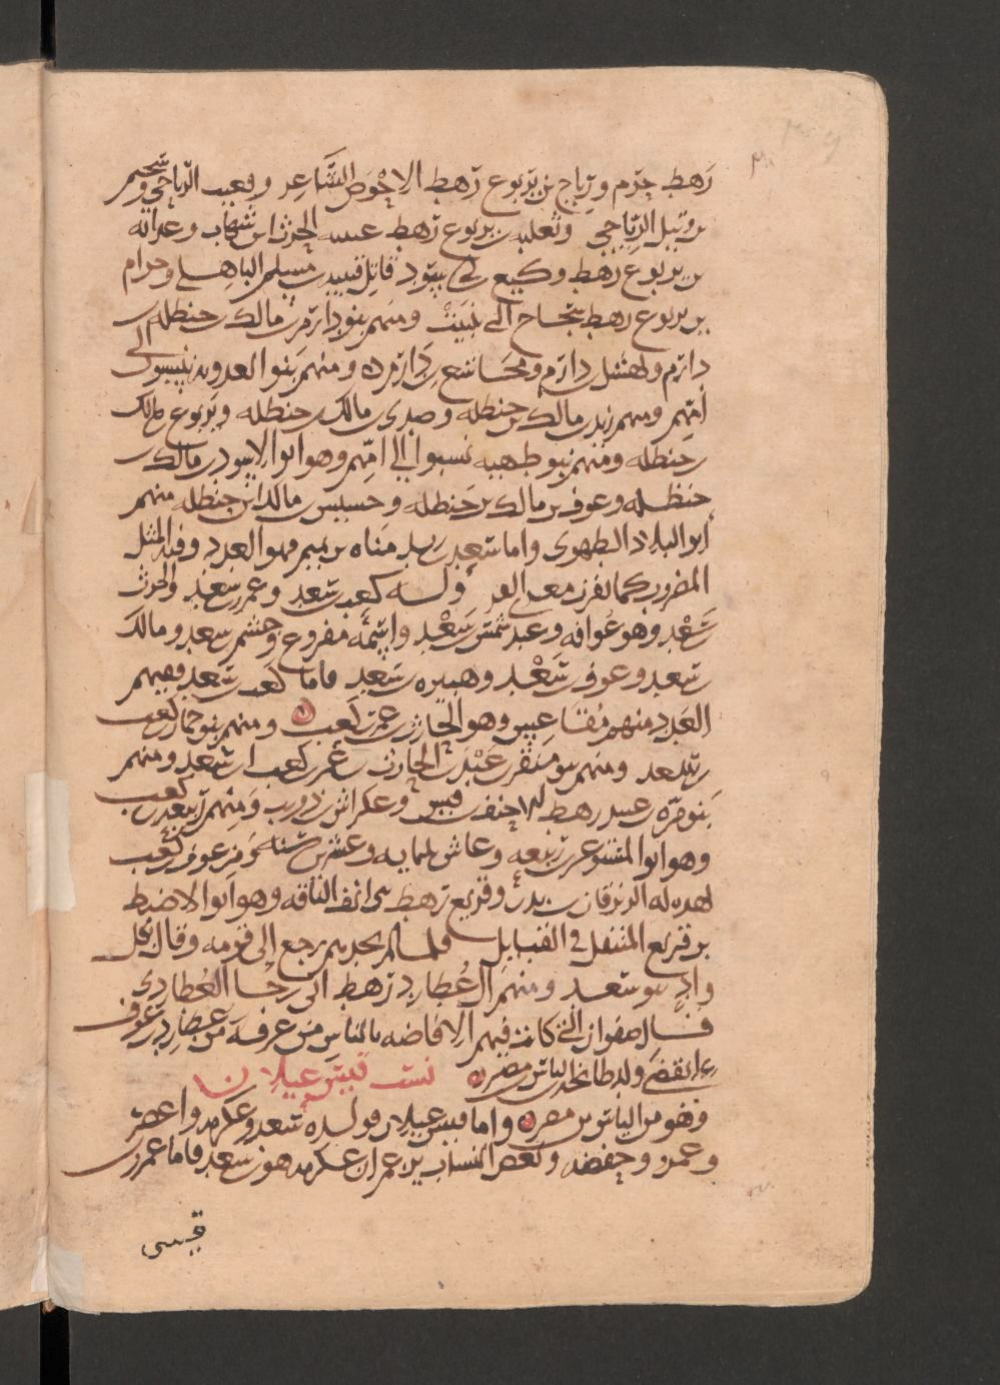 رهط جرم ورياح بن يربوع رهط الاحوص الشاعر وقعنب الرياحي وسحيم
بن وثيل الرياحي وثعلبه بن يربوع رهط عتيبه الحرث ابن شهاب وغدانه
بن يربوع رهط وكيع قاتل قتيبه بن مسلم الباهلي وحرام
بن يربوع رهط سجاح التي تنبت ومنهم بنو دارم بن مالك بن حنظله
دارم ونهشل بن دارم ومجاشع بن دارم ومنهم بنو العدويه ينسبون الى
امهم ومنهم زيد بن مالك بن حنظله وصدى بن مالك بن حنظله ويربوع بن مالك
بن حنظله ومنهم بنو طهيه نسبوا الى امهم وهو ابو الاسود بن مالك بن
حنظله وعوف بن مالك بن حنظله وحسيس بن مالك ابن حنظله منهم
ابو البلاد الطهوى واما سعد بن زيد مناه بن تميم فهو العدد وفيه المثل
المضروب كما تفرق معزى الفزر ولده كعب بن سعد وعمرو بن سعد والحرث
سعد وهو عوافه وعبد شمس بن سعد واسمه مفروع وجشم بن سعد ومالك
سعد وعوف بن سعد وهبيره بن سعد فاما كعب بن سعد ففيهم
العدد منهم مقاعس وهو الحارث بن عمرو بن كعب ومنهم بنو حمان كعب
بن سعد ومنهم بنو منقر بن عبيد بن الحارث بن عمرو بن كعب ابن سعد ومنهم
بنو مره بن عبيد رهط الاحنف بن قيس وعكراش بن ذويب ومنهم ربيعه بن كعب
وهو ابو المستوغر بن ربيعه وعاش ثلثمايه وعشرين سنه ومن عوف بن كعب
بهدله الزبرقان بن بدر وقريع رهط بني انف الناقه وهو ابو الاضبط
بن قريع المتنقل في القبايل فلما لم يحمدهم رجع الى قومه وقال بكل
واد بنو سعد ومنهم ال عطارد رهط ابى رجا العطاردى
قال صفوان التي كانت فيهم الافاضه بالناس من عرفه من عطارد بن عوف
انقضى ولد طابخه بن الياس بن مضر نسب قيس عيلان
وهو من الياس بن مضر واما قيس عيلان فولده سعد وعكرمه واعصر
وعمرو وحفصه وبعض النساب يزعم ان عكرمه هو بن سعد فاما عمرو بن
قيس